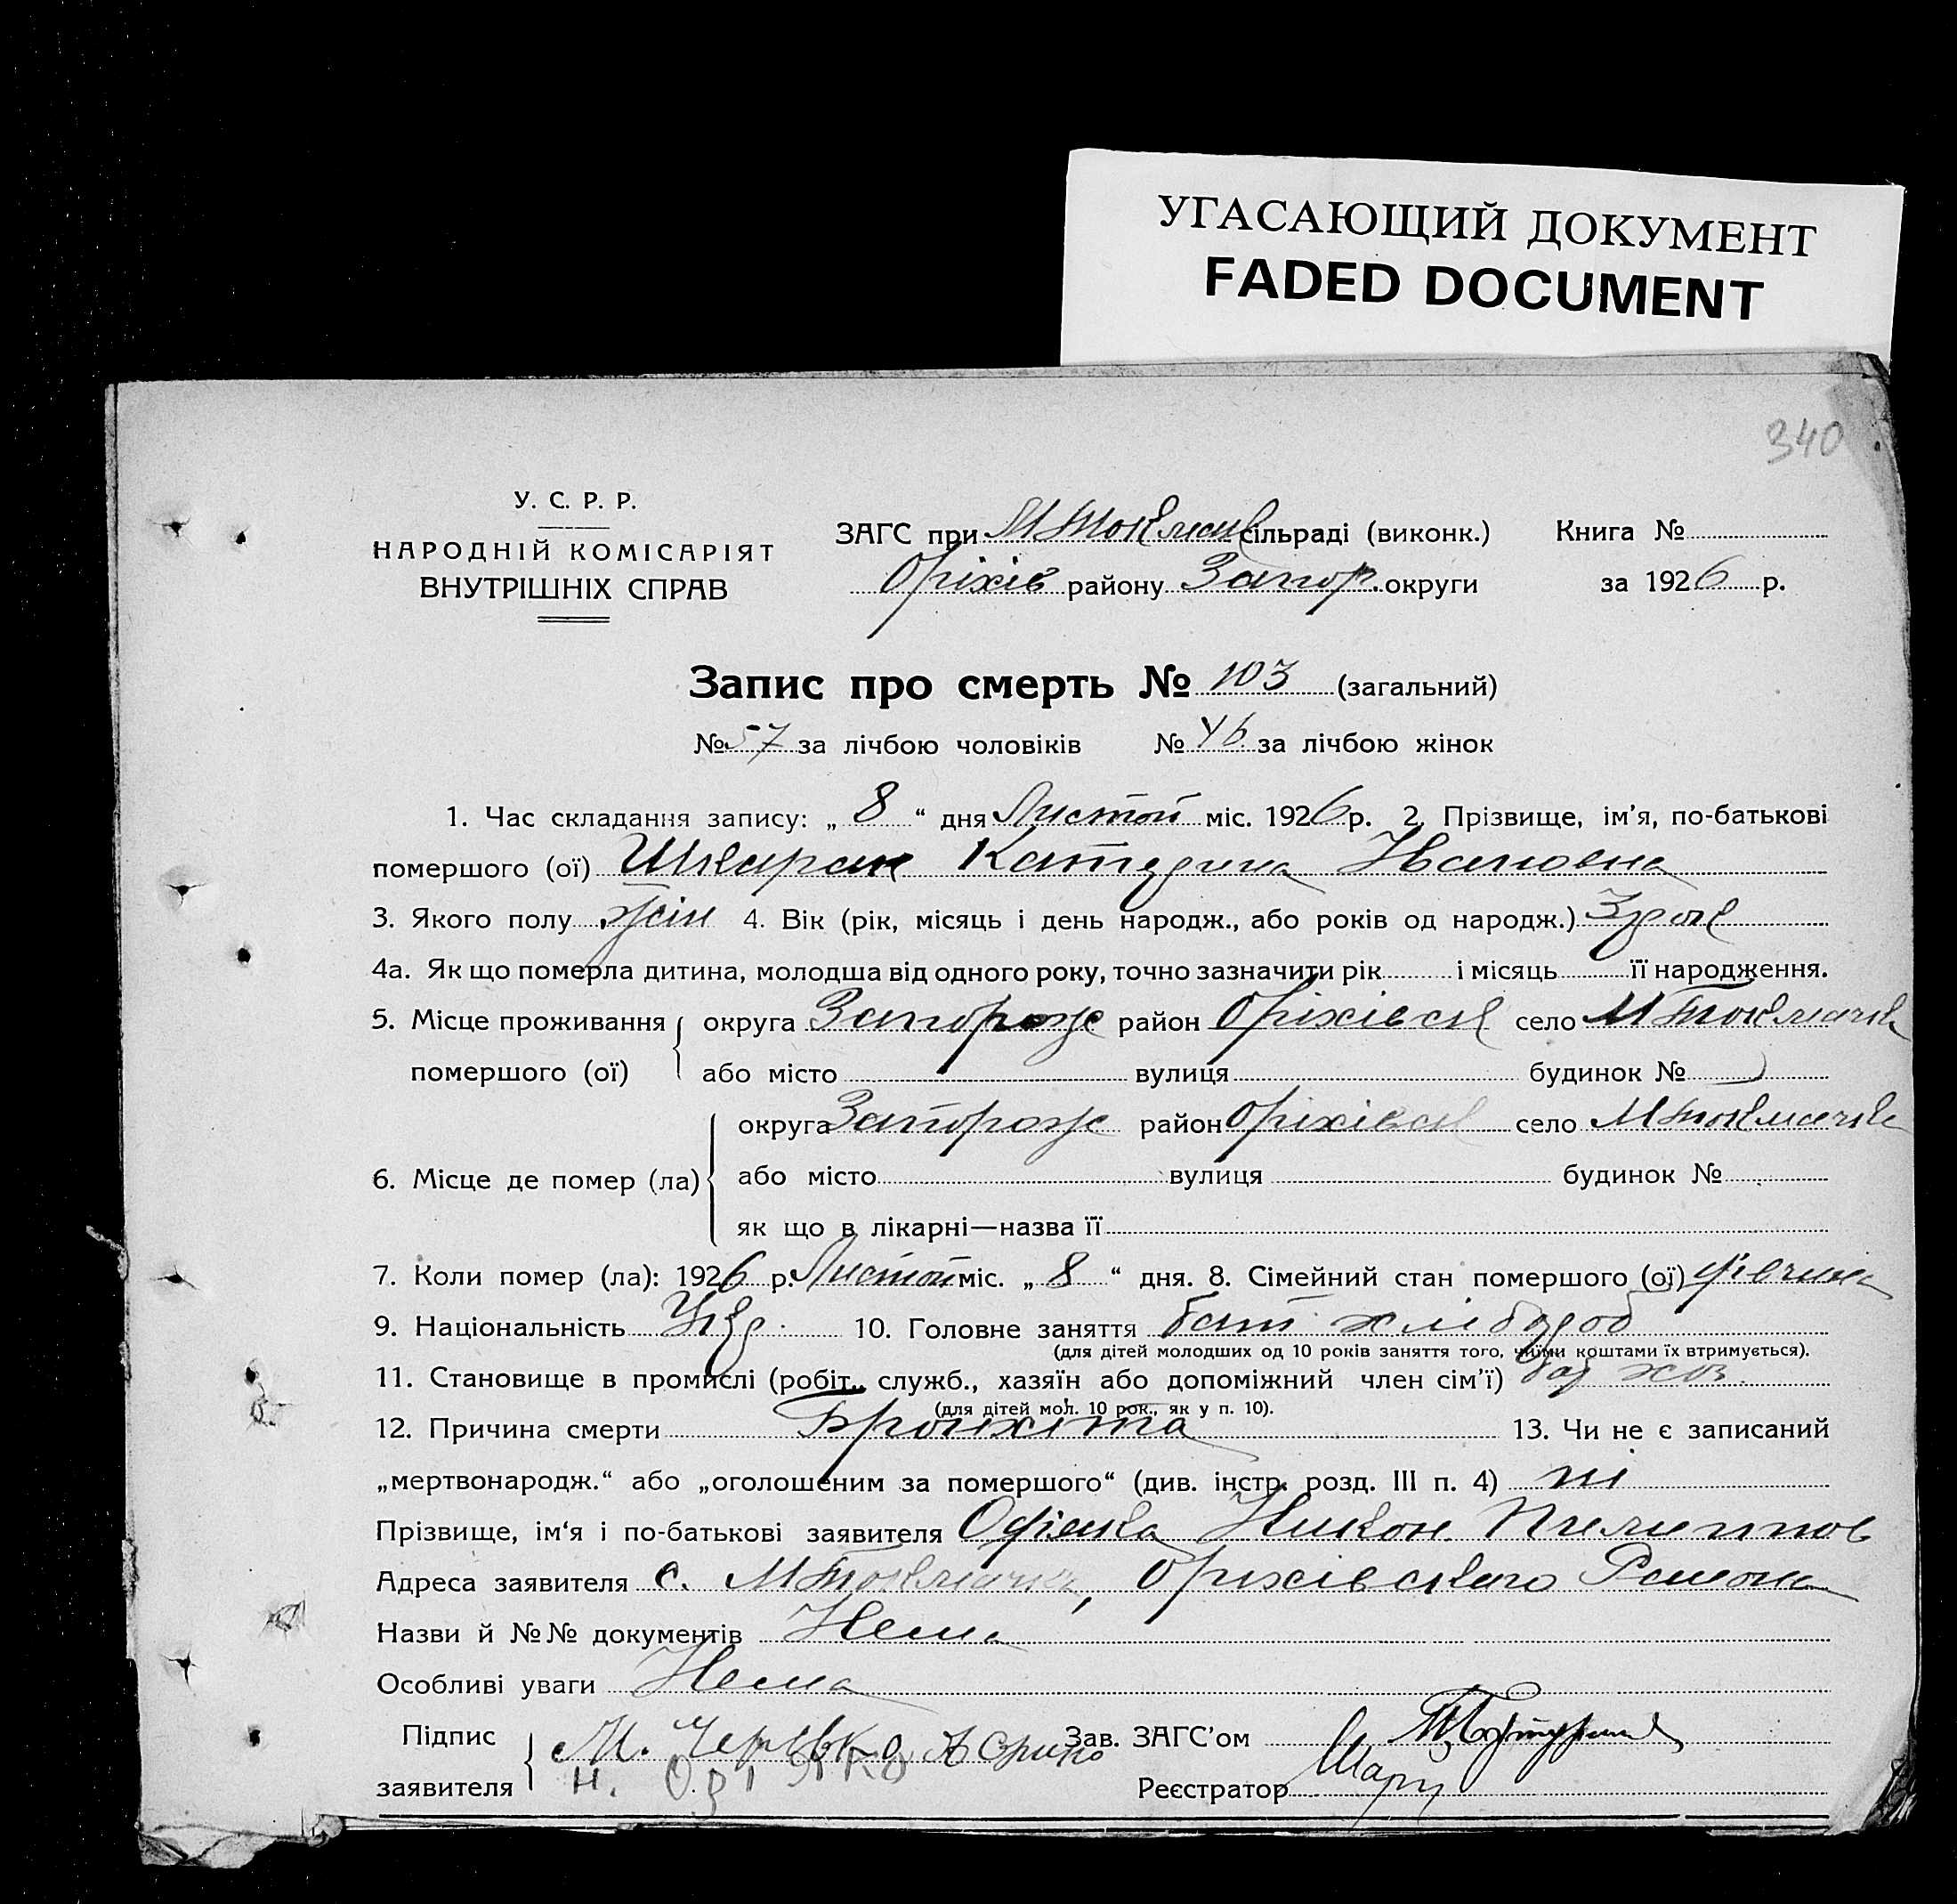 УГАСАЮЩИЙ ДОКУМЕНТ
FADED DOCUMENT
340
У. С. Р. Р.
НАРОДНІЙ КОМІСАРІЯТ
ВНУТРІШНІХ СПРАВ
ЗАГС при МТокмач сільраді (виконк.) Книга №
Оріхів району Запор. округи за 1926 р.
Запис про смерть № 103 (загальний)
№ 57 за лічбою чоловіків № 46 за лічбою жінок
1. Час складання запису: „ 8 “ дня Листоп міс. 1926 р. 2. Прізвище, ім’я, по-батькові
помершого (ої) Шкарак Катерина Івановна
3. Якого полу жін 4. Вік (рік, місяць і день народж., або років од народж.) 3 рок
4а. Як що померла дитина, молодша від одного року, точно зазначити рік і місяць її народження.
5. Місце проживання округа Запорож район Оріхівск село МТокмачка
помершого (ої) або місто вулиця будинок №
округа Запорож район Оріхівск село МТокмачка
6. Місце де помер (ла) або місто вулиця будинок №
як що в лікарні—назва її
7. Коли помер (ла): 1926 р. Листоп міс. „ 8 “ дня. 8. Сімейний стан помершого (ої) дівчина
9. Національність Укр. 10. Головне заняття бат хлібороб
(для дітей молодших од 10 років заняття того, чиїми коштами їх втримується).
11. Становище в промислі (робіт., служб., хазяїн або допоміжний член сім’ї) хоз.
(для дітей мол. 10 рок., як у п. 10).
12. Причина смерти Бронхіта 13. Чи не є записаний
„мертвонародж.“ або „оголошеним за помершого“ (див. інстр. розд. III п. 4) ні
Прізвище, ім‘я і по-батькові заявителя Никон Пилиппов
Адреса заявителя с. МТокмачка, Оріхівского Району
Назви й №№ документів Нема
Особливі уваги Нема
Підпис М. Зав. ЗАГС’ом
заявителя Н. Реєстратор